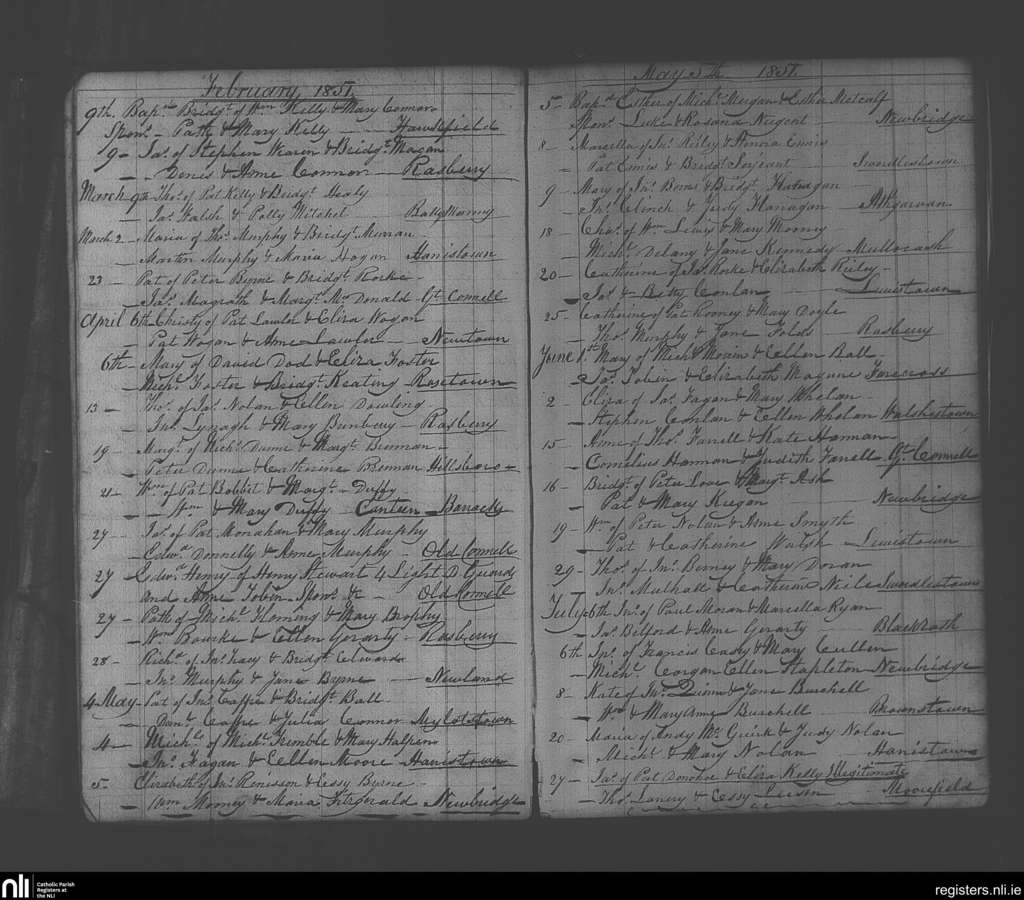 February, 1851.
9th. Bapm Bridgt of Wm Kelly & Mary Connor
Sponr - Patk & Mary Kelly Hawkfield
9 - Jas. of Stephen Waren & Bridgt Magan
- Denis & Anne Connor - Rasberry
March 9th Thos. of Pat Kelly & Bridgt Healy
- Jas. Walsh & Polly Mitchel Ballymanny
March 2 - Maria of Thos. Murphy & Bridgt Murran
- Martin Murphy & Maria Hogan Hanistown
23 - Pat of Peter Byrne & Bridgt Rorke
- Jas. Magrath & Margt McDonald Gt Connell
April 6th Christy of Pat Lawlor & Eliza Wogan
- Pat Wogan & Anne Lawlor - Newtown
6th - Mary of David Dod & Eliza Foster
- Michl Foster & Bridgt Keating Rosetown
13 - Thos. of Jas. Nolan & Ellen Dowling
- Jno. & Mary Brinberry - Rasberry
19 - Margt of Michl Dunne & Margt Brennan
- Peter Dunne & Catherine Brennan Hillsboro
21 - Wm of Pat Bobbit & Margt - Duffy
- Wm & Mary Duffy Canteen - Barracks
27 - Jas. of Pat Monahan & Mary Murphy
- Edwd Donnelly & Anne Murphy - Old Connell
27 - Edwd Henry of Henry Stewart 4 Light D. Guards
and Anne Tobin Sponr & - Old Connell
27 - Patk of Michl Horning & Mary Brophy
- Wm Bourke & Ellen Gerarty - Rasberry
28 - Richd of Jno. Tracy & Bridgt Edwards
- Jno. Murphy & Jane Byrne Newland
4 May - Pat of Jno. Caffre & Bridgt Ball
- Danl Caffre & Julia Connor Mylotstown
4 - Michl of Michl Tremble & Mary Halpin
- Jno. Fagan & Ellen Moore - Hanistown
5 - Elizabeth of Jno. Renisson & Cessy Byrne
- Mooney & Maria Fitzgerald Newbridge
May 5th 1851.
5 - Bapt Esther of Michl Megan & Esther Metcalf
Sponr Luke & Rosana Nugent - Newbridge
8 - Marcella of Jno. Riley & Honora Ennis
Pat Ennis & Bridgt Sergeant - Swordlestown
9 - Mary of Jno. Burns & Bridgt Flanagan
- Jno. Clinch & Judy Flanagan - Athgarvan
18 - Chas. of Wm Lewis & Mary Mooney
- Michl Delany & Jane Kennedy - Mullacash
20 - Catherine of Jas. Rorke & Elizabeth Riley -
- Jos. & Betty Conlan - Lewistown
25 - Catherine of Pat Rooney & Mary Doyle
- Thos. Murphy & Jane Folds - Rasberry
June 1st Mary of Michl Moran & Ellen Ball
- Jas. Tobin & Elizabeth Maguire Forecross
2 - Eliza of Jas. Fagan & Mary Whelan
- Stephen Conlan & Ellen Whelan Walshestown
15 - Anne of Thos. Farrell & Kate Hannan
- Cornelius Hannan & Judith Farrell - Gt Connell
16 - Bridgt of Peter Love & Margt Ash
- Pat & Mary Keegan - Newbridge
19 - Wm of Peter Nolan & Anne Smyth
- Pat & Catherine Walsh - Lewistown
29 - Thos. of Jno. & Mary Doran
- Jno. Mulhall & Catherine Neile Swordlestown
July 6th Jno. of Paul Moran & Marcella Ryan
- Jas. Belford & Anne Gerarty - Blackrath
6th Jno. of Francis Casey & Mary Cullen
- Michl Corgan Ellen Stapleton - Newbridge
8 - Kate of Jno. Quinn & Jane Burchell
- Wm & Mary Anne Burchell Moonstown
20 - Maria of Andy McGuirk & Judy Nolan
- Michl & Mary Nolan - Hanistown
27 - Jas. of Pat Donohoe & Eliza Kelly Illegitimate
- Thos. Lawry & Cessy Leeson Moorefield
nli Catholic Parish
Registers at
the NLI
registers.nli.ie